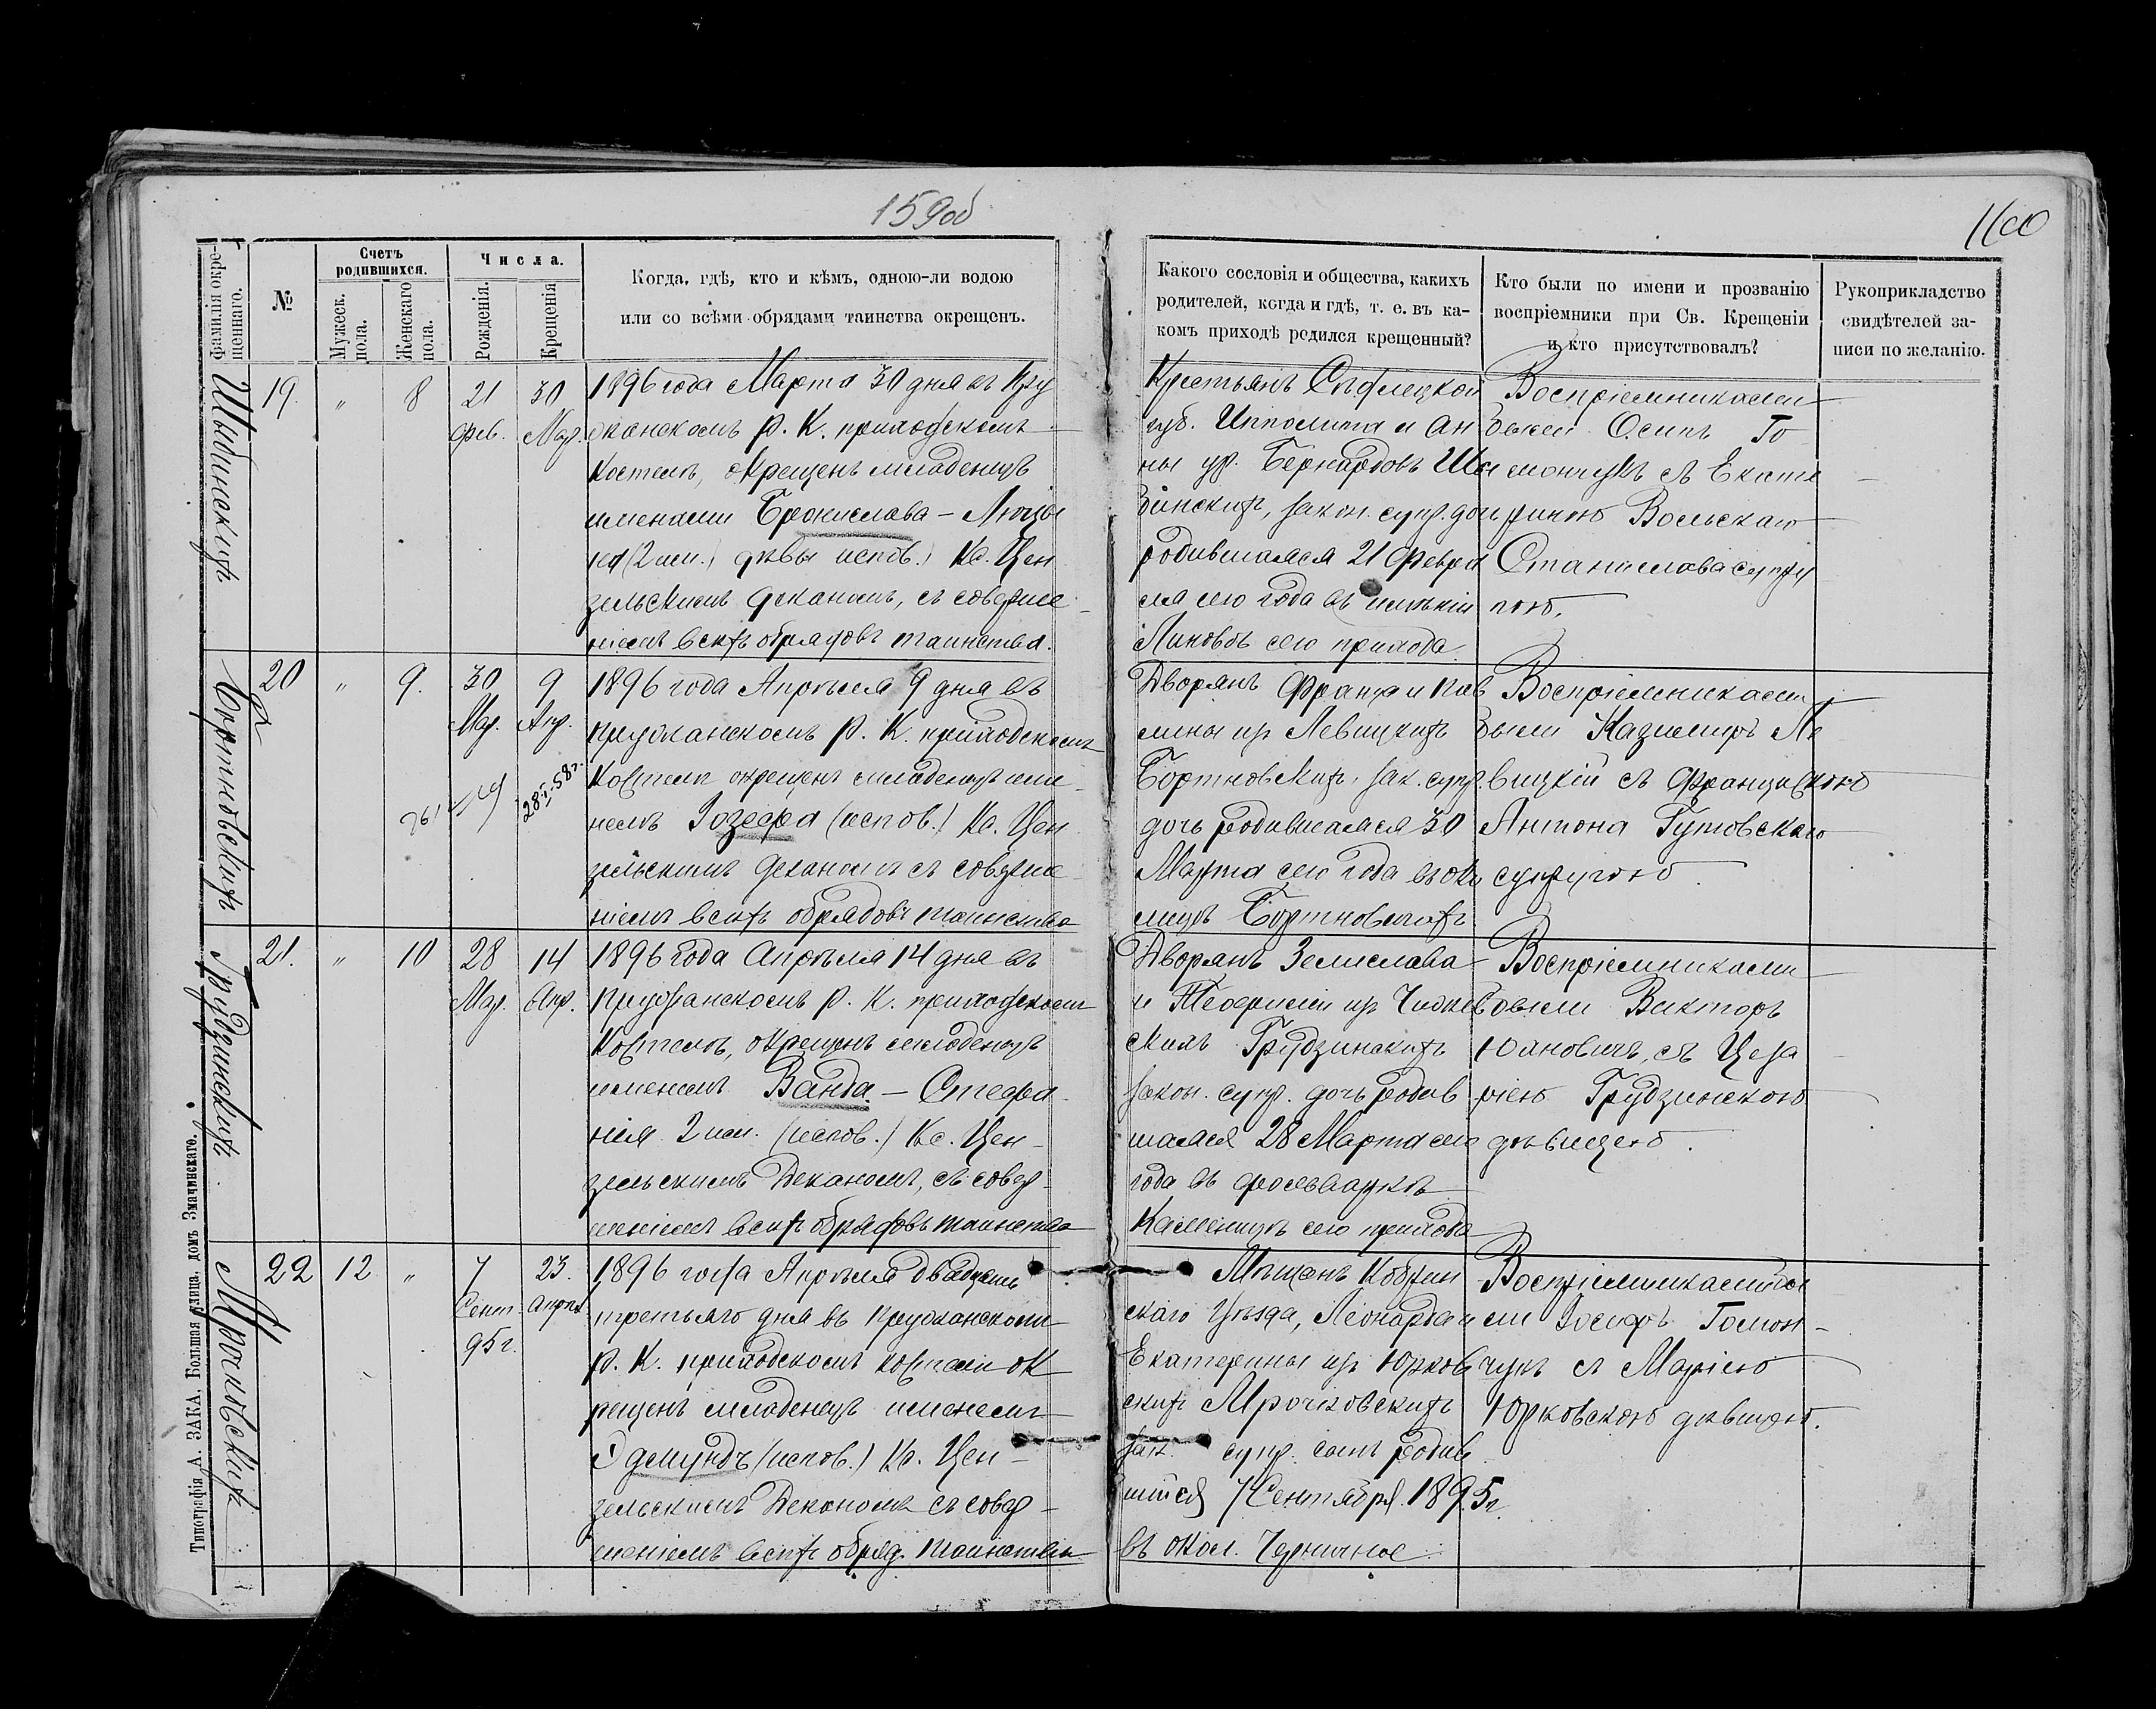 159об
160
фамилія окре-
щеннаго.
№
Счетъ
родившихся.
Мужеск.
пола.
Женскаго
пола.
Числа.
Рожденія.
Крещенія
Когда, гдѣ, кто и кѣмъ, одною-ли водою
или со всѣми обрядами таинства окрещенъ.
Какого сословія и общества, какихъ
родителей, когда и гдѣ, т. е. въ ка-
комъ приходѣ родился крещенный?
Кто были по имени и прозванію
воспріемники при Св. Крещеніи
и кто присутствовалъ?
Рукоприкладство
свидѣтелей за-
писи по желанію.
19. " 8 21 30
Фев. Мар.
1896 года Марта 30 дня въ Пру
жанскомъ Р. К. приходскомъ
Костелѣ, окрещенъ младенецъ
именами Бронислава – Люцы
на (2 им.) дѣвы испов.) Кс. Цен
зельскимъ Деканомъ, съ соверше
ніемъ всѣхъ обрядовъ таинства.
Крестьянъ Сѣдлецкой
губ. Ипполита и Ан
ны ур. Бернардовъ Шы
бинскихъ, закон. супр. дочь
родившаяся 21 Февра
ля сего года въ имѣніи
Линовѣ сего прихода.
Воспріемниками
были Осипъ Го
мончукъ съ Екате
риною Вольскаго
Станислава супру
гою.
20 " 9. 30 9
Мар. Апр.
28.I.58г.
Бортновскихъ
1896 года Апрѣля 9 дня въ
пружанскомъ Р. К. приходскомъ
Костелѣ окрещенъ младенецъ име
немъ Іозефа (испов.) Кс. Цен
зельскимъ Деканомъ съ соверше
ніемъ всѣхъ обрядовъ таинства
Дворянъ Франца и Пав
лины ур. Левицкихъ
Бортновскихъ, зак. супр.
дочь родившаяся 30
Марта сего года въ око
лицѣ Бортновскихъ
Воспріемниками
были Казимиръ Ле
вицкій съ Францискою
Антона Гутовскаго
супругою.
21. " 10 28 14
Мар. Апр.
Грудзинскихъ
1896 года Апрѣля 14 дня въ
Пружанскомъ Р. К. приходскомъ
Костелѣ, окрещенъ младенецъ
именемъ Ванда – Стефа
нія 2 им. (испов.) Кс. Цен-
зельскимъ Деканомъ, съ совер-
шеніемъ всѣхъ обрядовъ таинства
Дворянъ Земислава
и Теофиліи ур.
скихъ Грудзинскихъ
закон. супр. дочь родив
шаяся 28 Марта сего
года въ фольваркѣ
сего прихода
Воспріемниками
были Викторъ
Юановичъ, съ Цеза
ріею Грудзинскою
дѣвицею.
22 12 " 7 23.
Сент. Апрѣл.
95 г.
Мрочковскихъ
1896 года Апрѣля двадцать
третьяго дня въ Пружанскомъ
Р. К. приходскомъ костелѣ ок
рещенъ младенецъ именемъ
Эдмундъ (испов.) Кс. Цен-
зельскимъ Деканомъ съ совер-
шеніемъ всѣхъ обряд. таинства
Мѣщанъ Кобрин
скаго Уѣзда, Леонарда и
Екатерины ур. Юрков
скихъ Мрочковскихъ
зак. супр. сынъ родив
шійся 7 Сентября 1895 г.
въ окол. Черничное
Воспріемниками бы
ли Іосифъ Гомон-
чукъ съ Маріею
Юрковскою дѣвицею.
Типографія А. ЗАКА, Большая улица, домъ Змачинскаго.